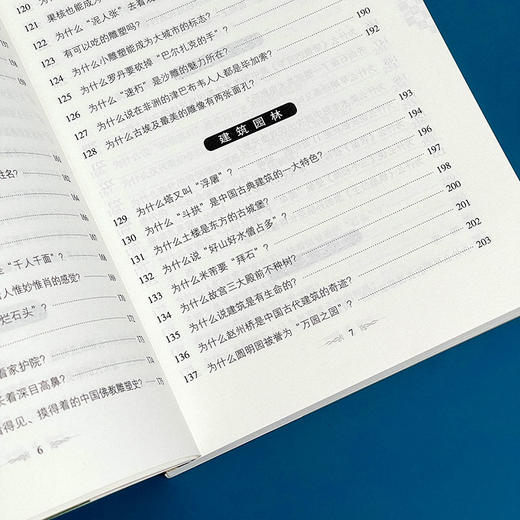 120 果核也能成为
122 为什么“泥人张”去看戏
123 有可以吃的雕塑吗?
124 为什么小雕塑能成为大城市的标志?
125 为什么罗丹要砍掉“巴尔扎克的手”?
126 为什么“速朽”是沙雕的魅力所在?
127 为什么说在非洲的津巴布韦人人都是毕加索? 190
128 为什么古埃及最美的雕像有两张面孔? 192
建筑园林
129 为什么塔又叫“浮屠”? 193
130 为什么“斗拱”是中国古典建筑的一大特色? 194
131 为什么土楼是东方的古城堡? 196
132 为什么说“好山好水僧占多”? 197
133 为什么米芾要“拜石”? 198
134 为什么故宫三大殿前不种树?
135 为什么说建筑是有生命的? 200
136 为什么赵州桥是中国古代建筑的奇迹? 201
137 为什么圆明园被誉为“万园之园”? 203
7
姓名?
“千人千面”?
人惟妙惟肖的感觉?
烂石头”?
着家护院?
长着深目高鼻?
看得见、摸得着的中国佛教雕塑史?
6